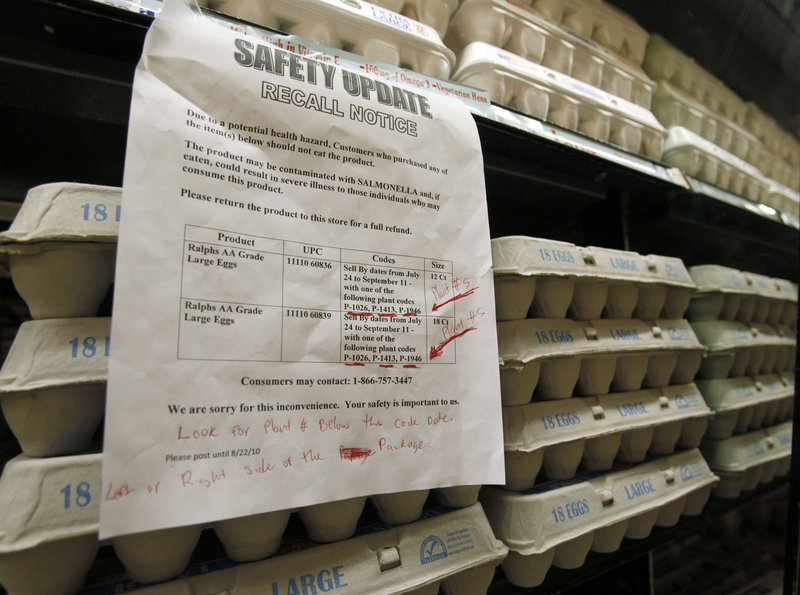 LARGE
High in Vitamin E
-100 mg of Omega 3 -Vegetarian Hens
SAFETY UPDATE
RECALL NOTICE
Due to a potential health hazard, Customers who purchased any of
the item(s) below should not eat the product.
The product may be contaminated with SALMONELLA and, if
eaten, could result in severe illness to those individuals who may
consume this product.
Please return the product to this store for a full refund.
Product UPC Codes Size
Ralphs AA Grade Large Eggs 11110 60836 Sell By dates from July 12 Ct
24 to September 11 -
with one of the
following plant codes
P-1026, P-1413, P-1946
Plant #s
Ralphs AA Grade Large Eggs 11110 60839 Sell By dates from July 18 Ct
24 to September 11 -
with one of the
following plant codes
P-1026, P-1413, P-1946
Plant #s
Consumers may contact: 1-866-757-3447
We are sorry for this inconvenience. Your safety is important to us.
Look for Plant # Below the Code Date.
Please post until 8/22/10
Left or Right side of the Package.
18
18
18
LARGE
18 EGGS LARGE
18 EGGS LARGE
18 EGGS LARGE
18 EGGS LARGE